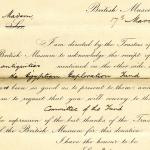 British Muse
Madam
17th Marc
I am directed by the Trustees of
British Museum to acknowledge the receipt of
antiquities mentioned in the other side
the Egyptian Exploration Fund
been so good as to present to them; and
to request that you will convey to the
Committee of the Fund
the expression of the best thanks of the Trustees
of the British Museum for this donation
I have the honor to be